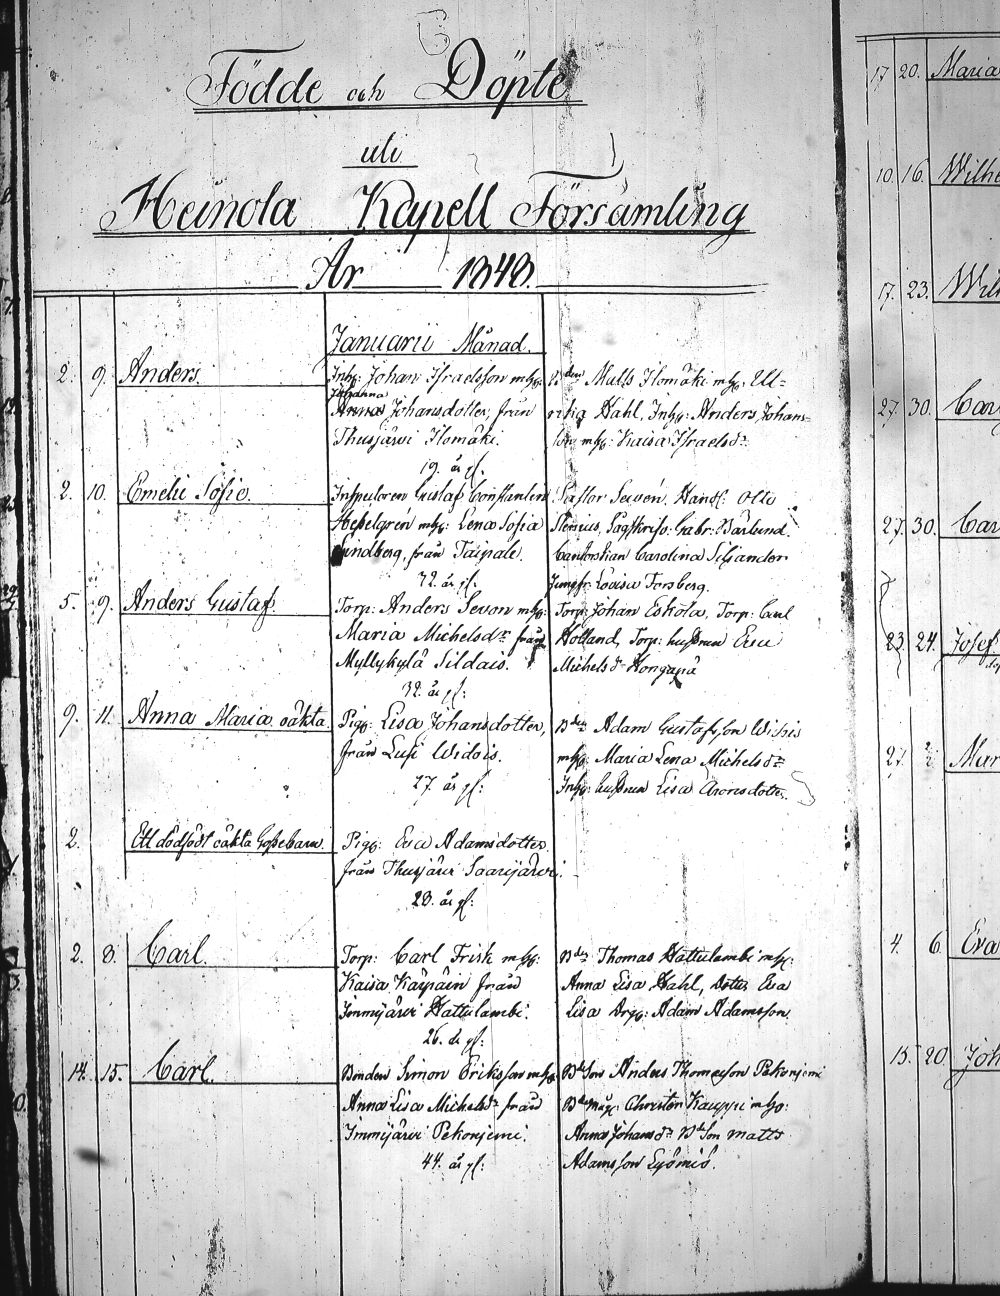 Födde och Döpte
uti
Heinola Kapell Församling
År 1848.
Januarii Månad.
2. 9. Anders.
Inhg: Johan Israelsson m hg:
Johanna
Anna Johansdotter, från
Thusjärvi Ilomäki.
19. år gl.
Bden Matts Ilomäki m hg. Ul-
rika Hahl, Inhg: Anders Johans-
son m hg: Kaisa Israelsdr
2. 10. Emelie Sofie.
Inspectoren Gustaf Constantin
Hesselgrén m hg: Lena Sofia
Sundberg, från Taipale.
32. år gl.
Pastor Sevén. Handl: Otto
Stenius, Sagskrifv. Gabr: Barlund.
Cantorskan Carolina Siljander
Jungfr: Lovisa Forsberg.
5. 9. Anders Gustaf.
Torp: Anders Sevon m hg:
Maria Michelsdr från
Myllykylä Sildais.
32. år gl:
Torp: Johan Eskola, Torp: Carl
Holland, Torp: hustrun Eva
Michelsd Hongapä
9. 11. Anna Maria oäkta
Pig: Lisa Johansdotter,
från Lusi
27. år gl:
Bden Adam Gustafsson
m hg. Maria Lena Michelsdr
Inhg: hustrun Lisa Aronsdotter.
2. Ett dödfödt oäkta Gossebarn.
Pig: Eva Adamsdotter
från Thusjärvi Saarijärvi.
28. år gl:
2. 8. Carl.
Torp: Carl Frisk m hg:
Kaisa Käyräin från
Immijärvi Hattulambi.
26. år gl:
Bden Thomas Hattulambi m hg:
Anna Lisa Hahl, Dotter Eva
Lisa Drg: Adam Adamsson.
14. 15. Carl.
Bonden Simon Eriksson m hg
Anna Lisa Michelsdr från
Immijärvi Pekonjemi.
44. år gl:
Bdson Anders Thomasson Pekonjemi
Christer Kauppi m hg:
Anna Johansdr Bdson Matts
Adamsson
17 20. Maria
10. 16. Wilhe
17. 23. Wil
27. 30. Car
27. 30. Car
23. 24. Josef.
27. 2 Mar
4. 6. Eva
15. 20 Joh